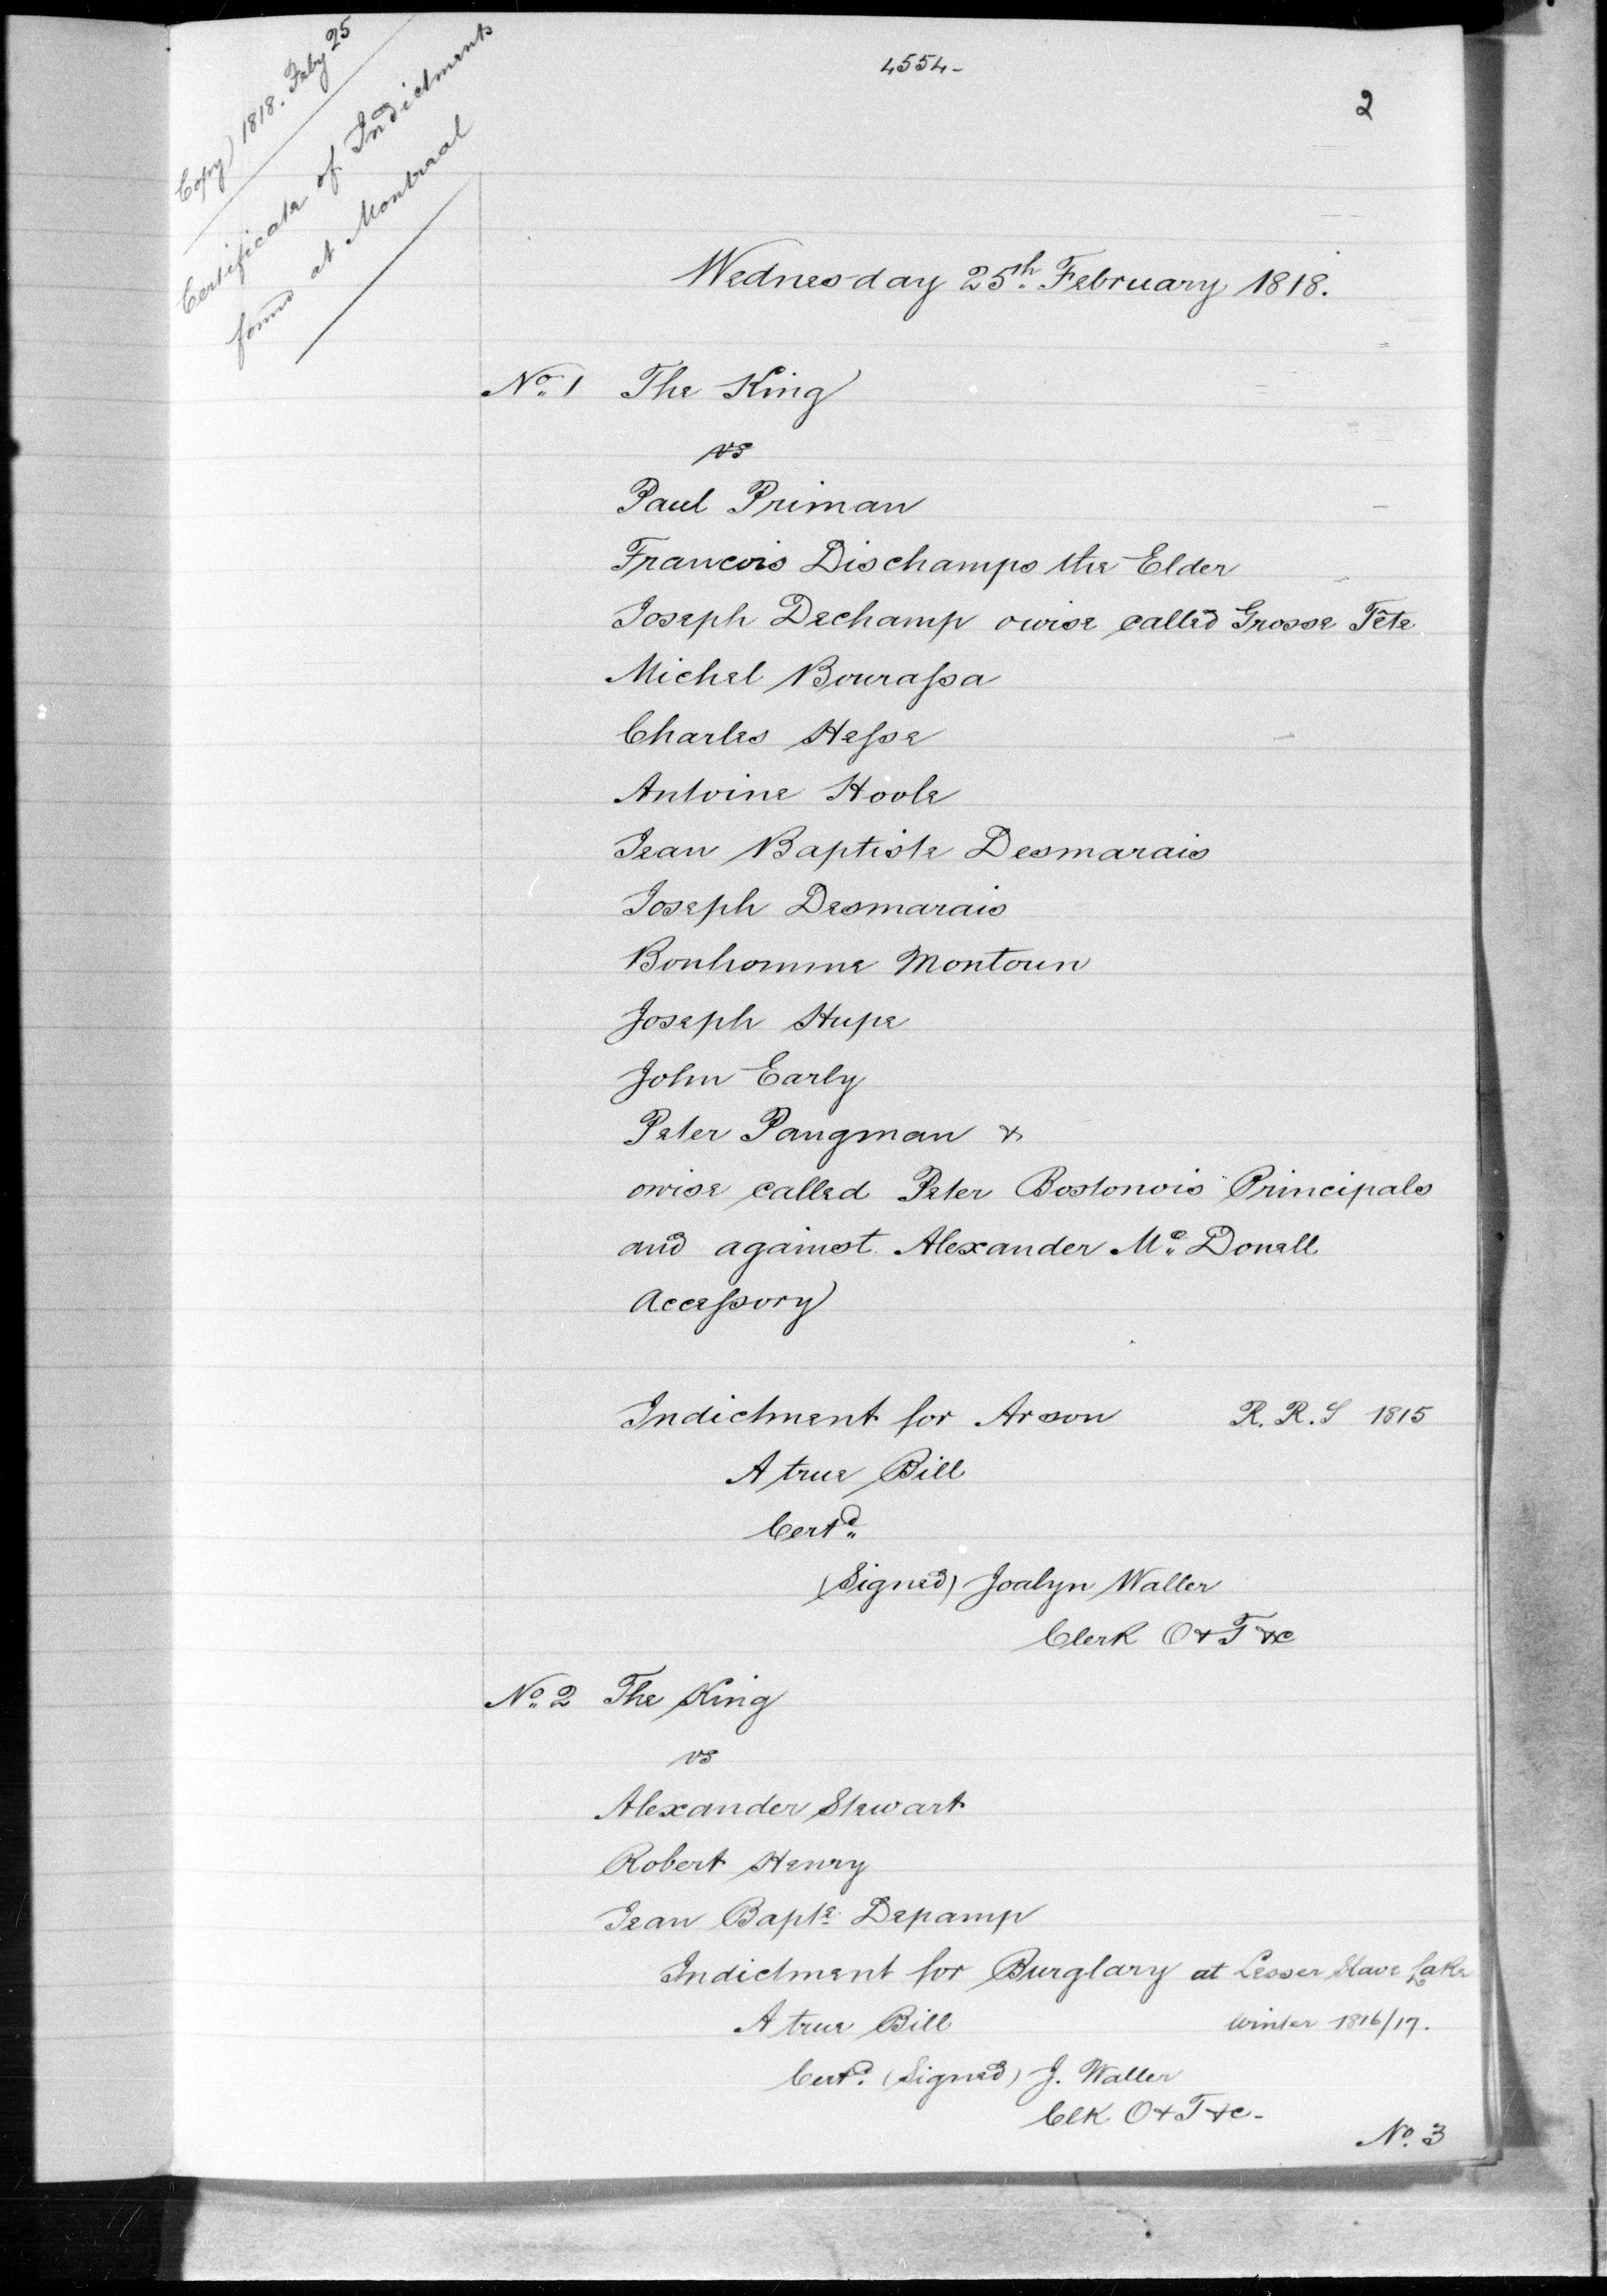 4554-
2
Copy) 1818. Feby 25
Certificate of Indictments
found at Montreal
Wednesday 25th February 1818.
No. 1 The King
vs
Paul Priman
Francois Dischamps the Elder
Joseph Dechamp owise called Grosse Tête
Michel Bourassa
Charles Hesse
Antoine Hoole
Jean Baptiste Desmarais
Joseph Desmarais
Bonhomme Montoun
Joseph Hupe
John Early
Peter Pangman &
owise called Peter Bostonois Principals
and against Alexander Mc Donell
Accessory
Indictment for Arson R. R. S 1815
A true Bill
Certd
(Signed) Joalyn Waller
Clerk O & T &c
No. 2 The King
vs
Alexander Stewart
Robert Henry
Jean Bapte Depamp
Indictment for Burglary at Lesser Slave Lake
A true Bill winter 1816/17.
Certd. (Signed) J. Waller
Clk O & T &c-
No. 3